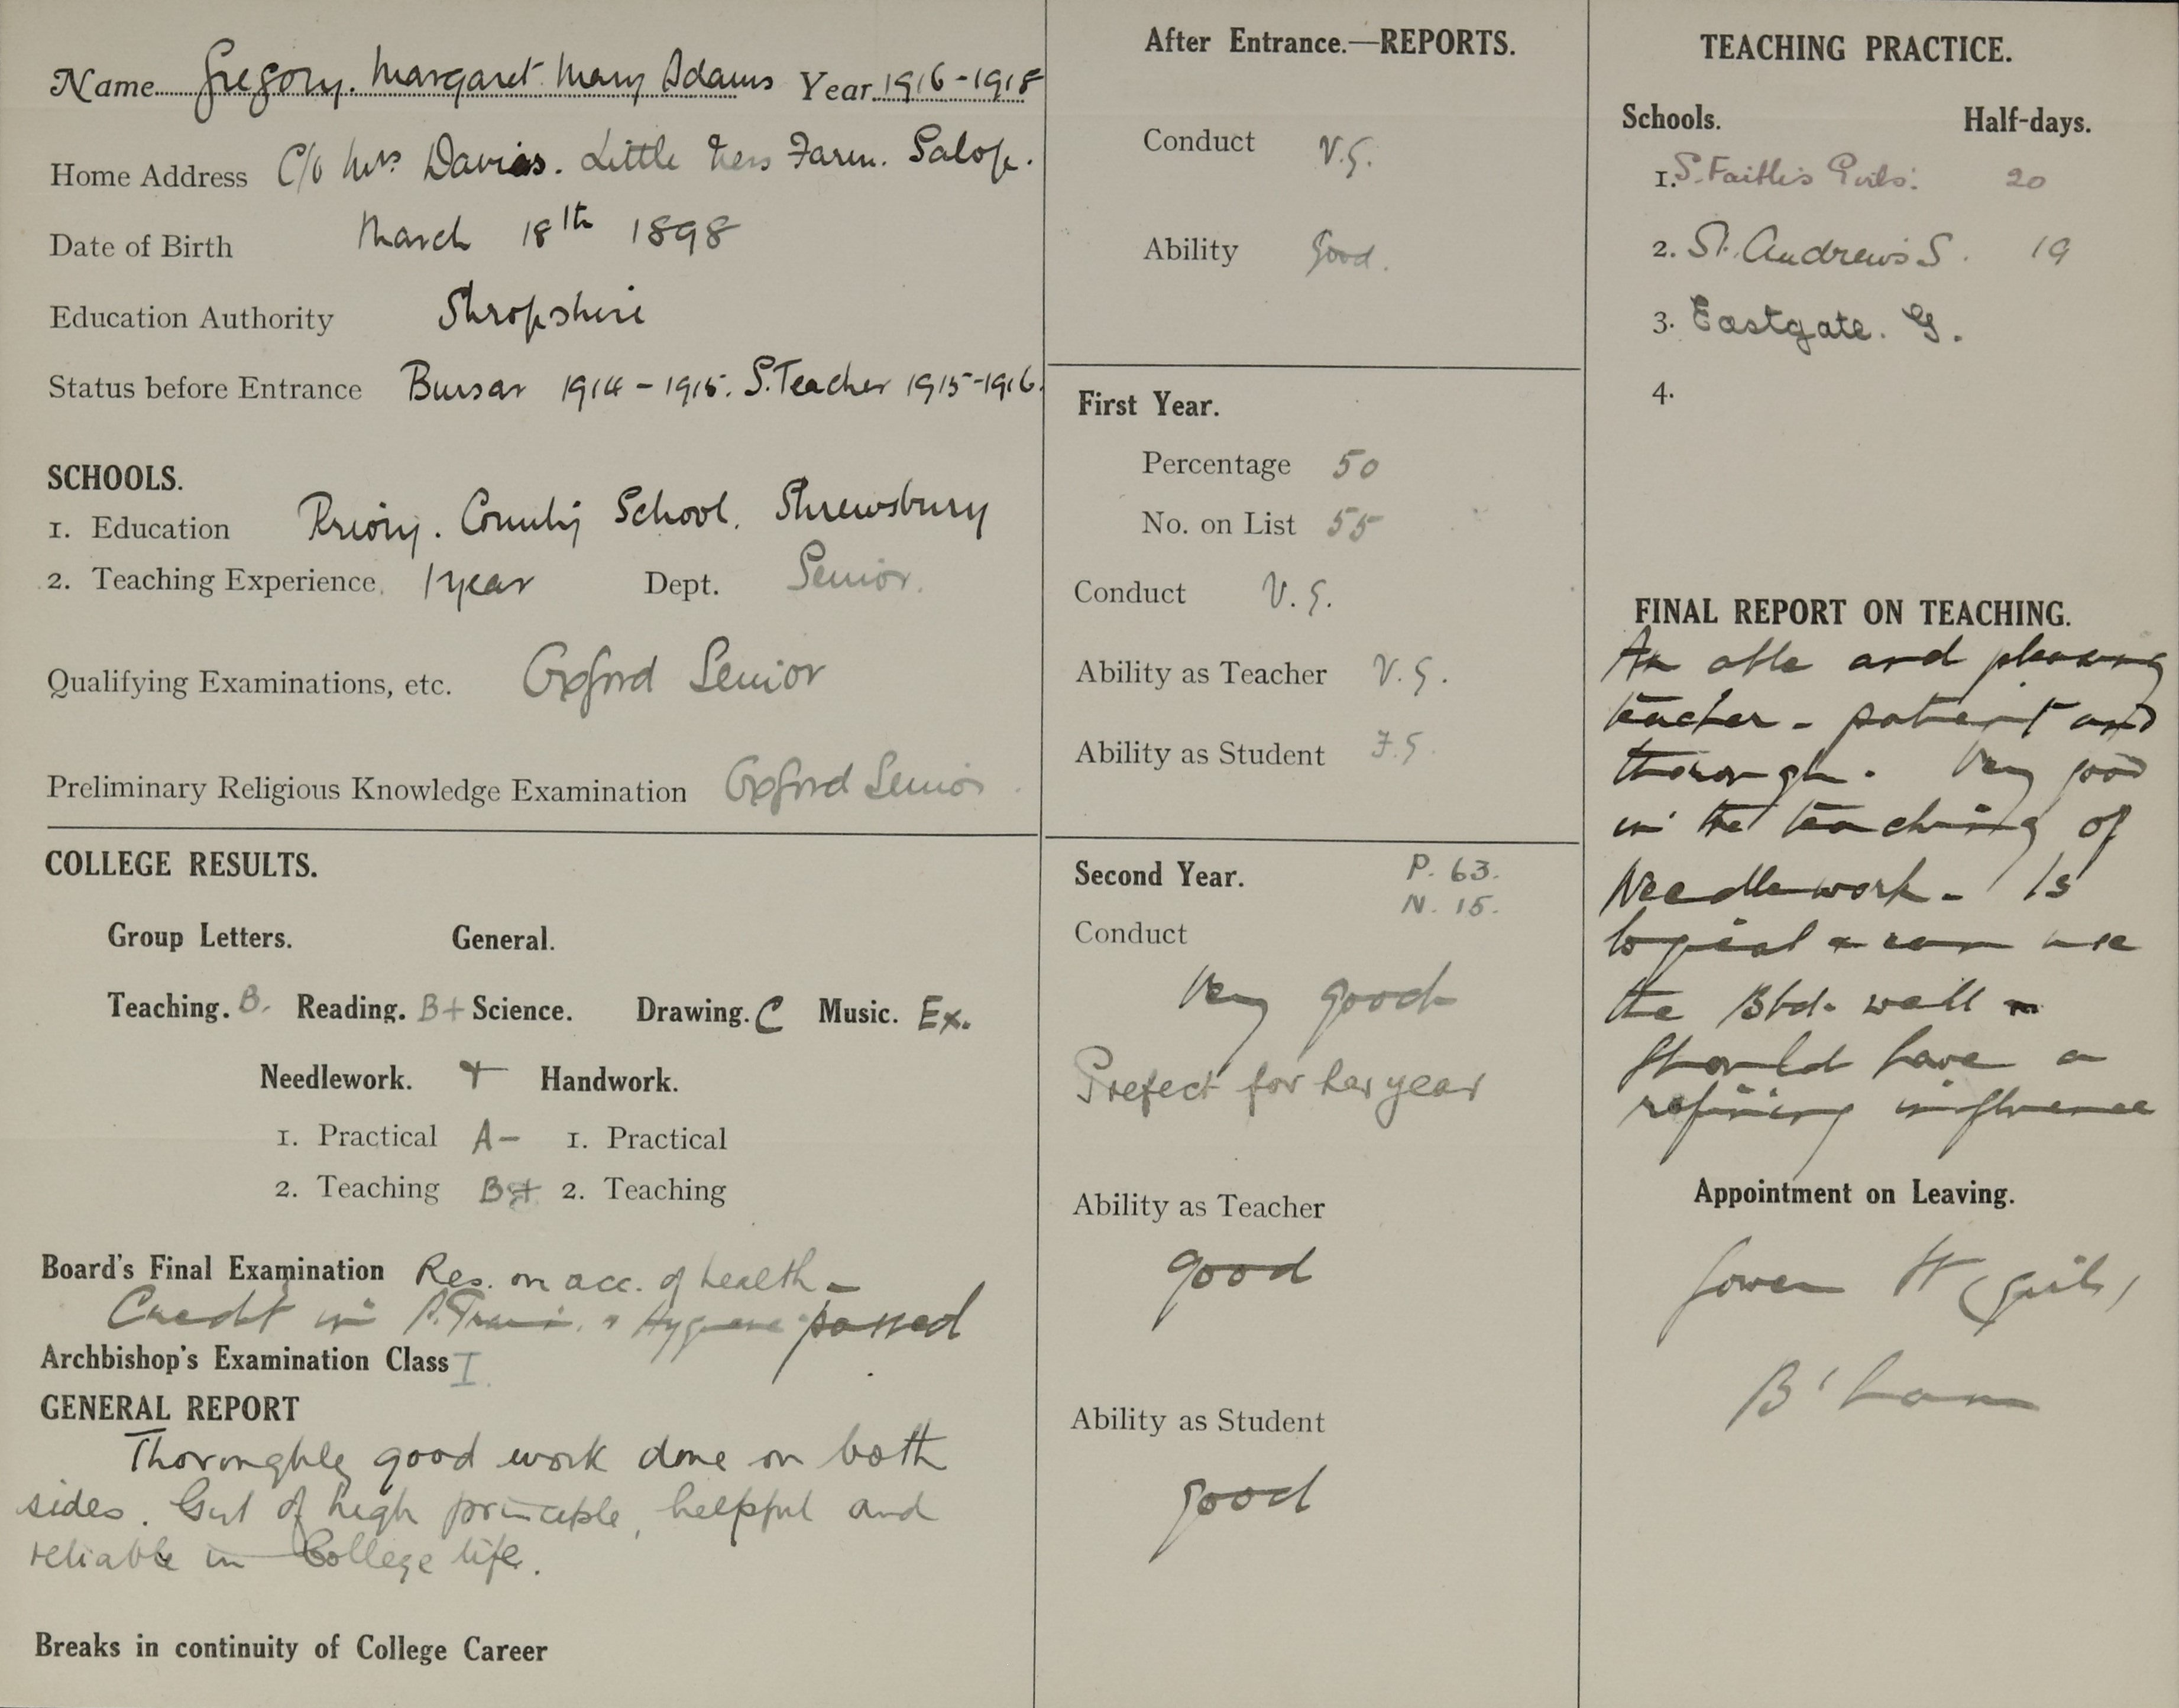 Name Gregory. Margaret Mary Adams Year 1916-1918
Home Address C/o Mrs Davies. Little Ness Farm. Salop.
Date of Birth March 18th 1898
Education Authority Shropshire
Status before Entrance Bursar 1914-1915. S.Teacher 1915-1916.
SCHOOLS.
1. Education Priory. County School. Shrewsbury
2. Teaching Experience. 1 year Dept. Senior.
Qualifying Examinations, etc. Oxford Senior
Preliminary Religious Knowledge Examination Oxford Senior
COLLEGE RESULTS.
Group Letters. General.
Teaching. B. Reading. B+ Science. Drawing. C Music. Ex.
Needlework. + Handwork.
1. Practical A- 1. Practical
2. Teaching B+ 2. Teaching
Board's Final Examination Res. on acc. of health -
Credit in P. Train. & Hygiene passed
Archbishop's Examination Class I.
GENERAL REPORT
Thoroughly good work done on both
sides. Girl of high principle, helpful and
reliable in College life.
Breaks in continuity of College Career
After Entrance.—REPORTS.
Conduct V.G.
Ability Good.
First Year.
Percentage 50
No. on List 55
Conduct V.G.
Ability as Teacher V.G.
Ability as Student F.G.
Second Year. P. 63.
N. 15.
Conduct
Very good
Prefect for her year
Ability as Teacher
good
Ability as Student
good
TEACHING PRACTICE.
Schools. Half-days.
1. S. Faith's Girls. 20
2. St. Andrew's S. 19
3. Eastgate. G.
4.
FINAL REPORT ON TEACHING.
An able and pleasing
teacher - patient and
thorough. Very good
in the teaching of
Needlework - Is
logical & can use
the Bbd. well
Should have a
refining influence
Appointment on Leaving.
Gower St (girls)
B'ham